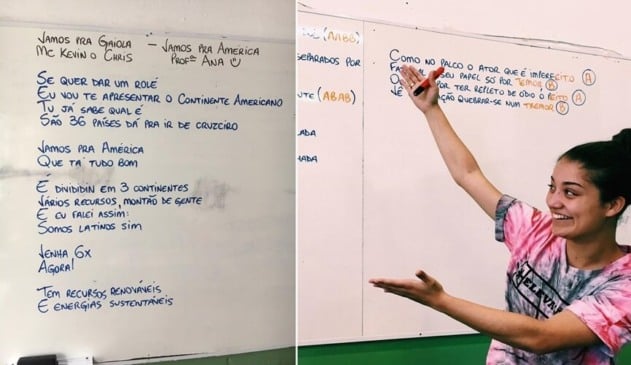 VAMOS PRA GAIOLA – VAMOS PRA AMÉRICA
MC KEVIN O CHRIS PROFª ANA
SE QUER DAR UM ROLÊ
EU VOU TE APRESENTAR O CONTINENTE AMERICANO
TU JÁ SABE QUAL É
SÃO 36 PAÍSES DÁ PRA IR DE CRUZEIRO
VAMOS PRA AMÉRICA
QUE TÁ TUDO BOM
É DIVIDIDIN EM 3 CONTINENTES
VÁRIOS RECURSOS, MONTÃO DE GENTE
E EU FALEI ASSIM:
SOMOS LATINOS SIM
VENHA 6X
AGORA!
TEM RECURSOS RENOVÁVEIS
E ENERGIAS SUSTENTÁVEIS
(AABB)
SEPARADOS POR
(ABAB)
COMO NO PALCO O ATOR QUE É IMPERFECITO A
SEU PAPEL SÓ POR TEMOR B
POR TER REPLETO DE ÓDIO O PEITO A
QUEBRAR-SE NUM TREMOR B